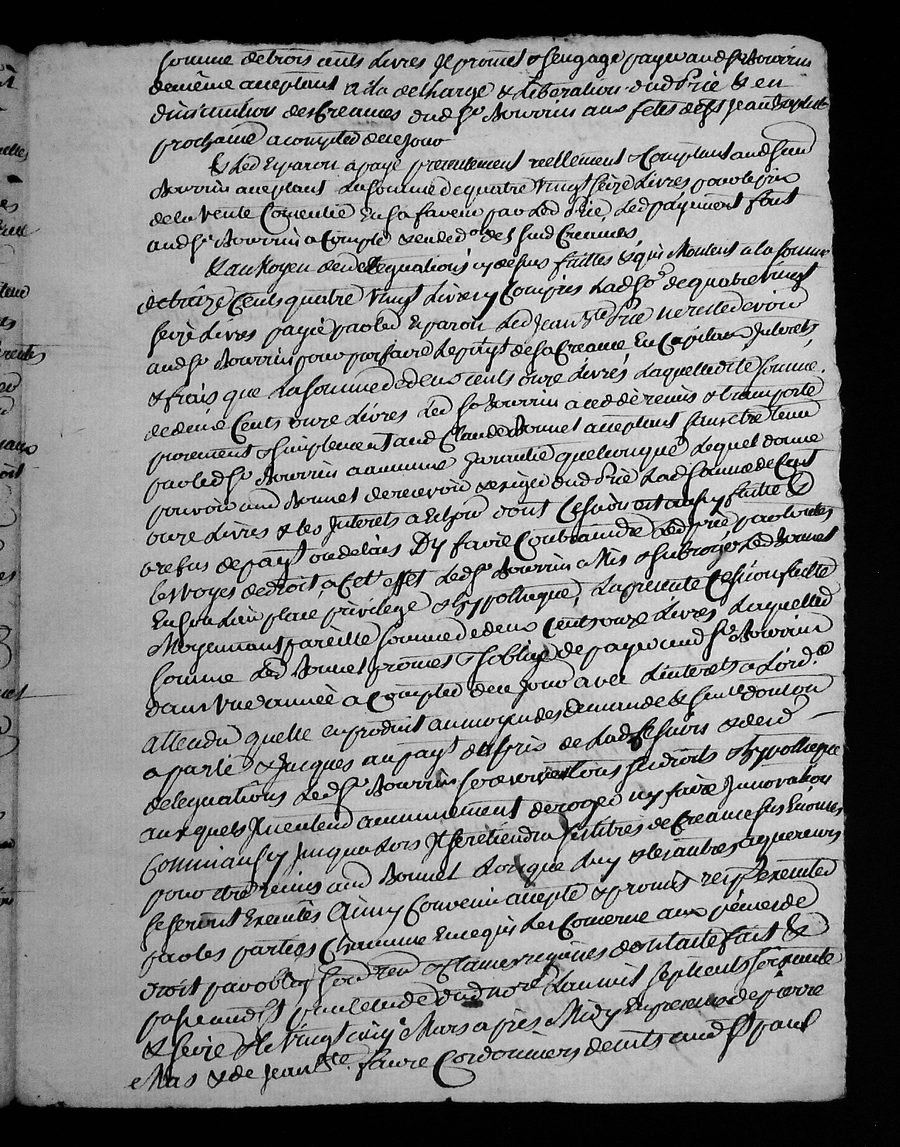 somme detrois cents Livres Jl promet & sengage payer aud Sr Bourrin
demême acceptant a la decharge & Liberation dud Prié & en
diminution des Creances dud Sr Bourrin aux fetes de St Jean Baptiste
prochaine acompter de ce jour
& Led Esparon a payé presentement reellement & Comptant aud Sieur
Bourrin acceptant La somme de quatre vingt seize Livres pour le prix
de la vente Consentie En sa faveur par Led Prié, Led payement fait
aud Sr Bourrin a Compte & en ded de ses sud Creances,
& au Moyen de ded deleguations cy dessus faittes & qui Montent a la somme
de treize Cents quatre vingt Livres y Compris Lad Se de quatre vingt
seize Livres payée par led Esparon Led Jean Bte Prié ne reste devoir
aud Sr Bourrin pour parfaire Le payt de sa Creance En Capitaux Interets
& frais que La somme de deux cents onze Livres Laquelle ditte somme
de deux Cents onze Livres Led Sr Bourrin a cedé remis & transporté
purement & simplement aud Claude Bonnet acceptant sans etre tenu
par led Sr Bourrin a aucune Garantie quelconque Lequel donne
pouvoir aud Bonnet de recevoir & exiger dud Prié Lad Somme de Cent
onze Livres & les Interets a Echoir dont Cession est aussy faitte &
a refus de payt ou delais Dy faire Contraindre led Prié par toutes
les voyes de droit, a Cet effet Led Sr Bourrin a Mis & Subrogé Led Bonnet
En son Lieu place privilege & hyppotheque, La presente Cession faitte
Moyennant pareille somme de deux Cents onze Livres Laquelle
somme Led Bonnet promet & soblige de payer aud Sr Bourrin
dans une année a Compter de ce jour avec Linterets a Lord.e
attendu quelle en produit au moyen des demande & sence dont on
a parlé & Jusques au payt du prix de Lad Cession & ded
deleguations Led Sr Bourrin se reserve tous ses droits & hyppotheque
auxquels Jl nentend aucunement deroger ny faire Jnnovation
Comme aussy Jusqualors Jl se retiendra ses titres de Creance sus Enoncés
pour etre remis aud Bonnet Lorsque Luy & les autres acquereurs
se seront Executés Ainsy Convenu accepté & promis resp executer
par les parties Chacune En ce qui Les Concerne aux peines de
droit par oblig soud ren & clauses requises dont acte fait &
passé aud St paul etude dud nore Lan mil sept cents soixante
& seize & le vingt cinq Mars apres Midy En presence de pierre
Mas & de Jean Bte. favre Cordonniers demts aud St paul